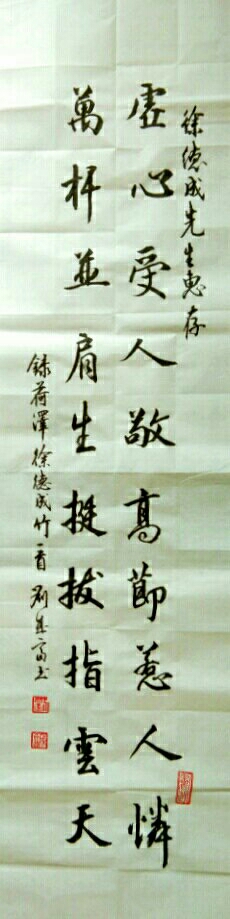 徐德成先生惠存
虛心受人敬高節惹人憐
萬杆並肩生挺拔指雲天
録荷澤徐德成竹一首